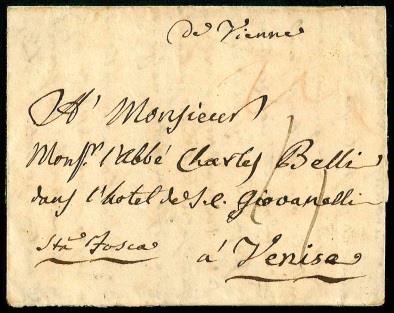 de Vienne
A' Monsieur
Mons.r l'abbé Charles Belli
dans l'hotel de S. E. Giovanelli
Sta Fosca à Venise